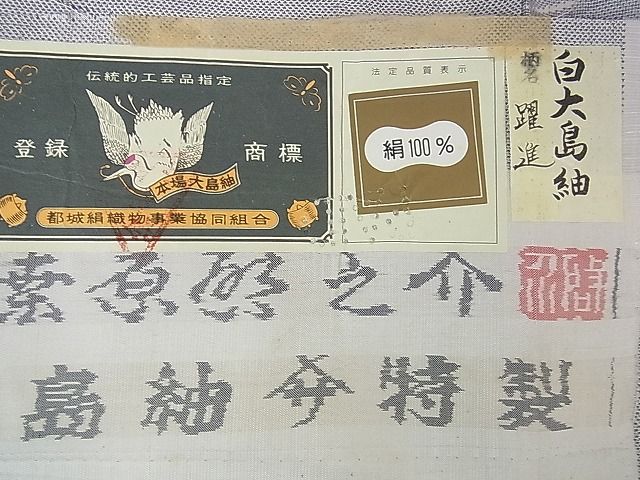 伝統的工芸品指定
登録 商標
本場大島紬
都城絹織物事業協同組合
法定品質表示
絹100%
柄名 躍進
白大島紬
原 之介
島紬 特製